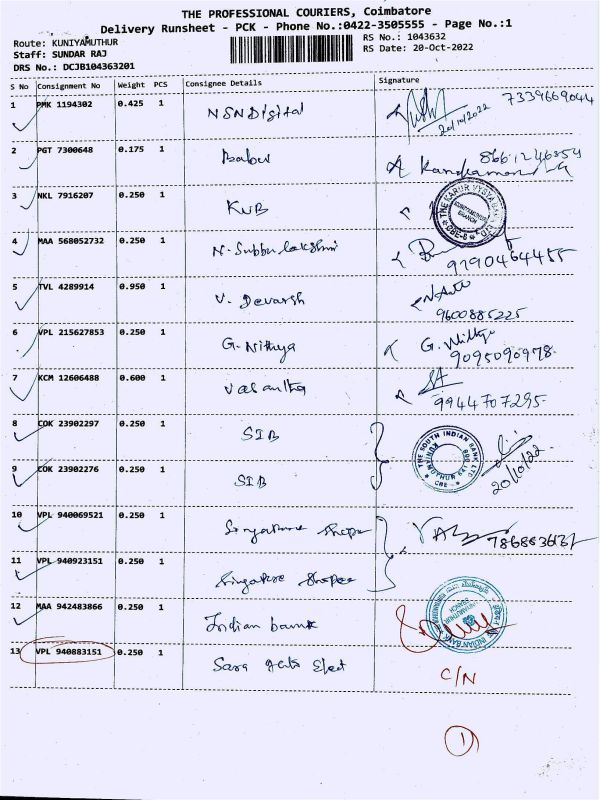 THE PROFESSIONAL COURIERS, Coimbatore
Delivery Runsheet - PCK - Phone No.:0422-3505555 - Page No.:1
Route: KUNIYAMUTHUR
RS No.: 1043632
Staff: SUNDAR RAJ
RS Date: 20-Oct-2022
DRS No.: DCJB104363201
S No Consignment No Weight PCS Consignee Details Signature
1 PMK 1194302 0.425 1 NSN Digital 20/10/2022 7339669044
2 PGT 7300648 0.175 1 Babu
3 NKL 7916207 0.250 1 KVB THE KARUR VYSYA BANK LTD KUNIYAMUTHUR BRANCH CBE-8
4 MAA 568052732 0.250 1 N. Subbu lakshmi 9790464455
5 TVL 4289914 0.950 1 V. Devarsh 9600885225
6 VPL 215627853 0.250 1 G. Nithya G. Nithya 9095090978
7 KCM 12606488 0.600 1 Vasantha 9944707295
8 COK 23902297 0.250 1 SIB THE SOUTH INDIAN BANK LTD CBE 20/10/22
9 COK 23902276 0.250 1 SIB
10 VPL 940069521 0.250 1 Singapore Shopee
11 VPL 940923151 0.250 1 Singapore Shopee
12 MAA 942483866 0.250 1 Indian bank INDIAN BANK
13 VPL 940883151 0.250 1 Sara C/N
1